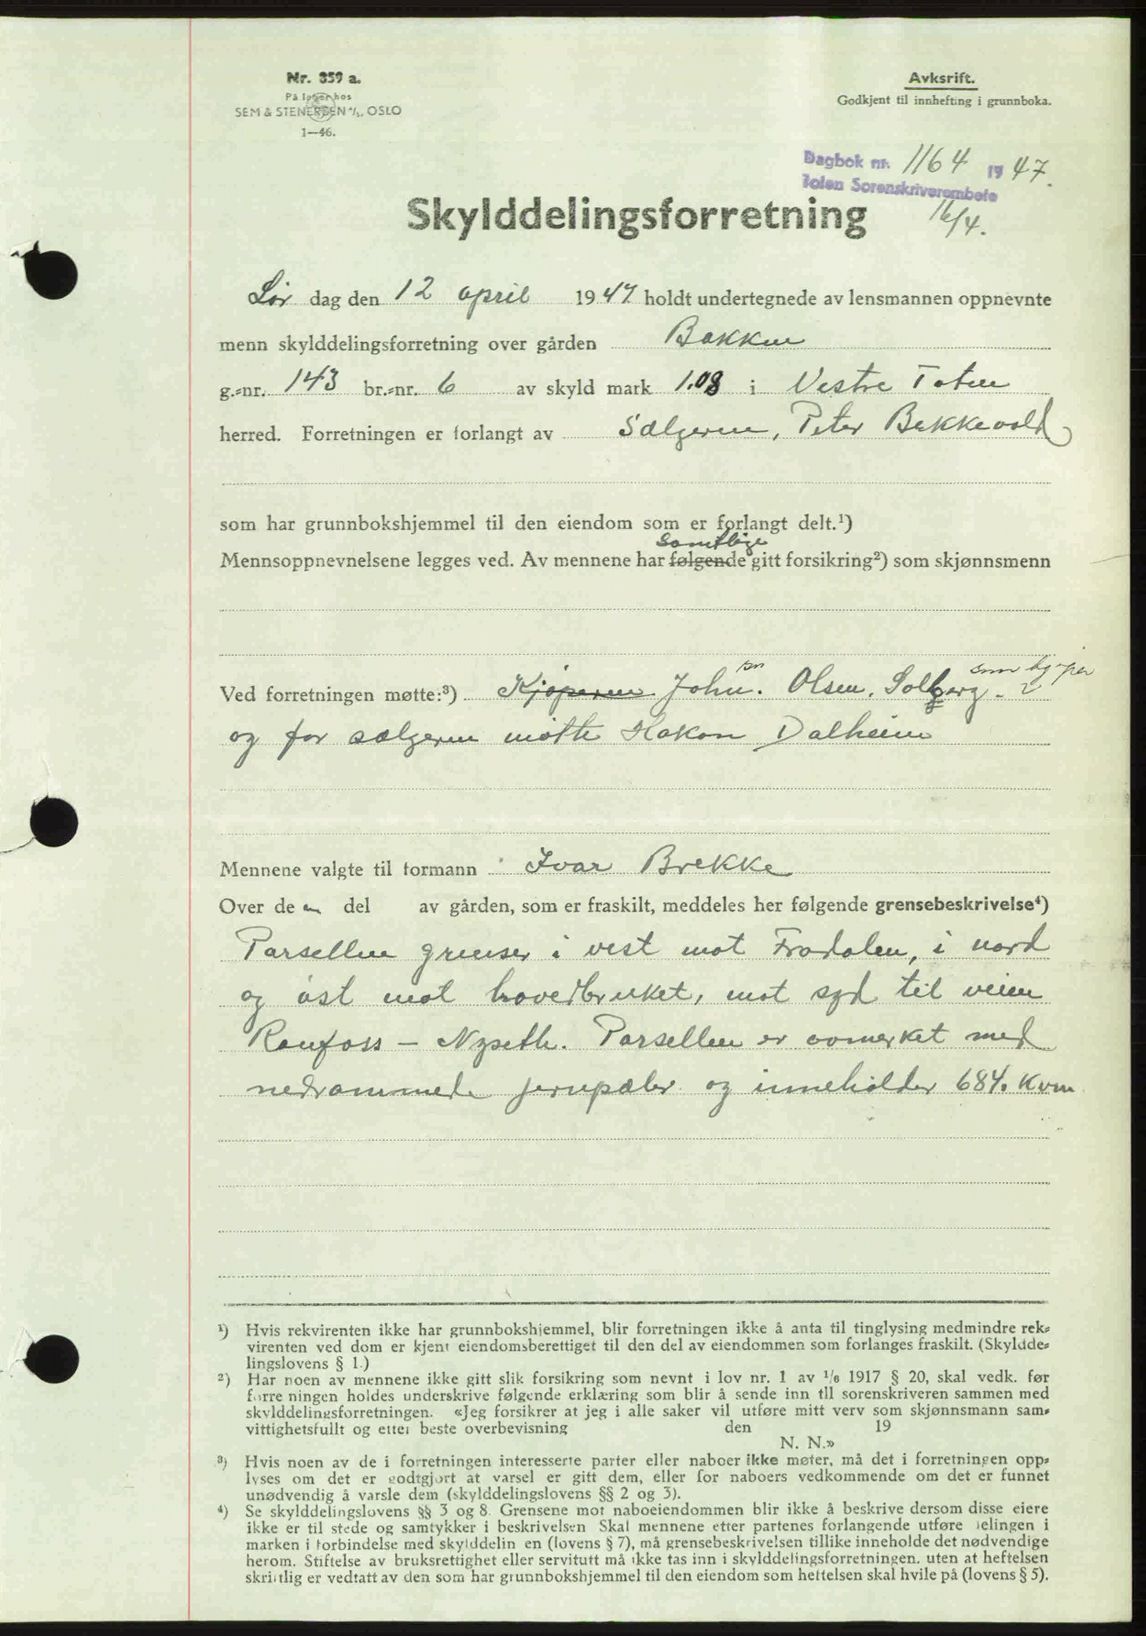 Nr. 359 a.
På lager hos
SEM & STENERSEN A/S, OSLO
1—46.
Avksrift.
Godkjent til innhefting i grunnboka.
Dagbok nr. 1164 1947.
Toten Sorenskriverembete
16/4.
Skylddelingsforretning
Lør dag den 12 april 1947 holdt undertegnede av lensmannen oppnevnte
menn skylddelingsforretning over gården Bakken
g.-nr. 143 br.-nr. 6 av skyld mark 1.08 i Vestre Toten
herred. Forretningen er forlangt av Sælgeren, Peter Bakkevold
som har grunnbokshjemmel til den eiendom som er forlangt delt.¹)
Samtlige
Mennsoppnevnelsene legges ved. Av mennene har følgende gitt forsikring²) som skjønnsmenn
Ved forretningen møtte:³) Kjøperen John. Olsen. Solberg. som kjøper
og for sælgeren møtte Hakon Dalheim
Mennene valgte til formann Ivar Brekke
Over de n del av gården, som er fraskilt, meddeles her følgende grensebeskrivelse⁴)
Parsellen grenser i vest mot Fradalen, i nord
og øst mot hovedbruket, mot syd til veien
Raufoss - Nyseth. Parsellen er avmerket med
nedrammede jernpæler og inneholder 684. Kvm
¹) Hvis rekvirenten ikke har grunnbokshjemmel, blir forretningen ikke å anta til tinglysing medmindre rek-
virenten ved dom er kjent eiendomsberettiget til den del av eiendommen som forlanges fraskilt. (Skyldde-
lingslovens § 1.)
²) Har noen av mennene ikke gitt slik forsikring som nevnt i lov nr. 1 av 1/6 1917 § 20, skal vedk. før
forreningen holdes underskrive følgende erklæring som blir å sende inn til sorenskriveren sammen med
skylddelingsforretningen. «Jeg forsikrer at jeg i alle saker vil utføre mitt verv som skjønnsmann sam-
vittighetsfullt og etter beste overbevisning den 19
N. N.»
³) Hvis noen av de i forretningen interesserte parter eller naboer ikke møter, må det i forretningen opp-
lyses om det er godtgjort at varsel er gitt dem, eller for naboers vedkommende om det er funnet
unødvendig å varsle dem (skylddelingslovens §§ 2 og 3).
⁴) Se skylddelingslovens §§ 3 og 8. Grensene mot naboeiendommen blir ikke å beskrive dersom disse eiere
ikke er til stede og samtykker i beskrivelsen Skal mennene etter partenes forlangende utføre delingen i
marken i forbindelse med skylddelin en (lovens § 7), må grensebeskrivelsen tillike inneholde det nødvendige
herom. Stiftelse av bruksrettighet eller servitutt må ikke tas inn i skylddelingsforretningen. uten at heftelsen
skriftlig er vedtatt av den som har grunnbokshjemmel til den eiendom som heftelsen skal hvile på (lovens § 5).